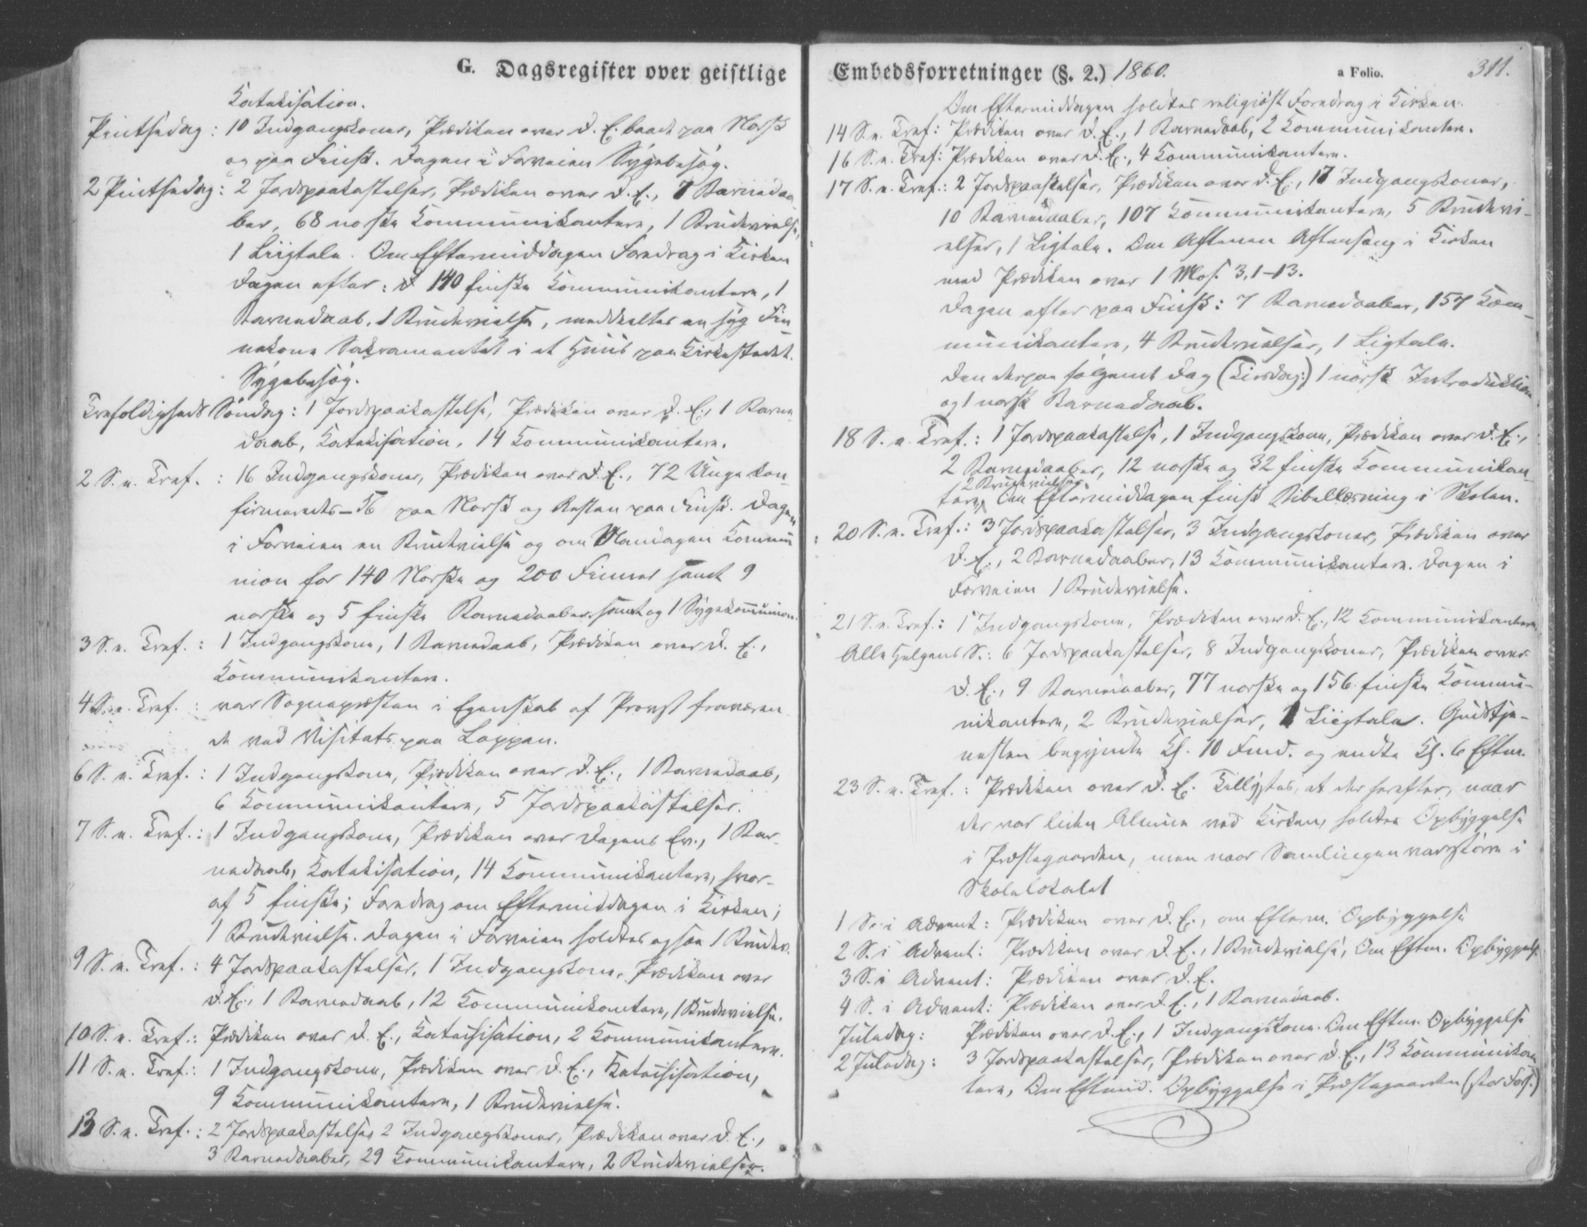 G. Dagsregister over geistlige
Katekisation.
Pintsedag: 10 Indgangskoner, Prædiken over D. E. baade paa Norsk
og paa Finsk. Dagen i Forveien Sygebesøg.
2 Pintsedag: 2 Jordpaakastelser, Prædiken over D. E., 7 Barnedaa
ber, 68 norske Kommunikantere, 1 Brudevielse,
1 Liigtale. Om Eftermiddagen Foredrag i Kirken
Dagen efter: 140 finske Kommunikantere, 1
Barnedaab, 1 Brudevielse, meddeeltes en syg Fin
nekone Sakramentet i et Huus paa Kirkestedet.
Sygebesøg.
Trefoldigheds Søndag: 1 Jordpaakastelse, Prædiken over D. E., 1 Barne
daab, Katekisation, 14 Kommunikantere.
2 S. e. Tref. : 16 Indgangskoner, Prædiken over D. E., 72 Unge kon
firmeredes – 56 paa Norsk og Resten paa Finsk. Dagen
i Forveien en Brudevielse og om Mandagen Kommu
nion for 140 Norske og 200 Finner samt 9
norske og 5 finske Barnedaaber, samt og 1 Sygekommunion.
3 S. e. Tref. : 1 Indgangskone, 1 Barnedaab, Prædiken over D. E.,
Kommunikantere.
4 S. e. Tref. : var Sognepræsten i Egenskab af Provst fraværen
de ved Visitats paa Loppen.
6 S. e. Tref. : 1 Indgangskone, Prædiken over D. E., 1 Barnedaab,
6 Kommunikantere, 5 Jordpaakastelser.
7 S. e. Tref. : 1 Indgangskone, Prædiken over Dagens Ev., 1 Bar-
nedaab, Katekisation, 14 Kommunikantere, hvor-
af 5 finske; Foredrag om Eftermiddagen i Kirken;
1 Brudevielse. Dagen i Forveien holdtes ogsaa 1 Brudev.
9 S. e. Tref. : 4 Jordpaakastelser, 1 Indgangskone, Prædiken over
D. E., 1 Barnedaab, 12 Kommunikantere, 1 Brudevielse.
10 S. e. Tref. : Prædiken over D. E., Katechisation, 2 Kommunikantere.
11 S. e. Tref. : 1 Indgangskone, Prædiken over D. E., Katechisation,
9 Kommunikantere, 1 Brudevielse.
13 S. e. Tref. : 2 Jordpaakastelser 2 Indgangskoner, Prædiken over D. E.,
3 Barnedaaber, 29 Kommunikantere, 2 Brudevielser.
Embedsforretninger (§. 2.) 1860. a Folio. 311.
Om Eftermiddagen holdtes religiøst Foredrag i Kirken.
14 S. e. Tref: Prædiken over D. E., 1 Barnedaab, 2 Kommunikanter.
16 S. e. Tref: Prædiken over D. E., 4 Kommunikantere.
17 S. e. Tref.: 2 Jordpaakastelser, Prædiken over D. E., 17 Indgangskoner,
10 Barnedaaber, 107 Kommunikantere, 5 Brudevi-
elser, 1 Ligtale. Om Aftenen Aftensang i Kirken
med Prædiken over 1 Mos. 3, 1–13.
Dagen efter paa Finsk: 7 Barnedaaber, 157 Kom-
munikantere, 4 Brudevielser, 1 Ligtale.
Den derpaa følgende Dag (Tirsdag:) 1 norsk Introduktion
og 1 norsk Barnedaab.
18 S. e. Tref. : 1 Jordpaakastelse, 1 Indgangskone, Prædiken over D. E.,
2 Barnedaaber, 12 norske og 32 finske Kommunikan
2 Brudevielser
tere, Om Eftermiddagen finsk Bibellæsning i Skolen.
20 S. e. Tref.: 3 Jordpaakastelser, 3 Indgangskoner, Prædiken over
D. E., 2 Barnedaaber, 13 Kommunikantere. Dagen i
Forveien 1 Brudevielse.
21 S. e. Tref.: 1 Indgangskone, Prædiken over D. E., 12 Kommunikantere
Alle Helgens S.: 6 Jordpaakastelser, 8 Indgangskoner, Prædiken over
D. E., 9 Barnedaaber, 77 norske og 156 finske Kommu-
nikantere, 2 Brudevielser, 1 Liigtale. Gudstje-
nesten begyndte Kl. 10 Fmd. og endte Kl. 6 Eftm.
23 S. e. Tref. : Prædiken over D. E. Tillystes, at der herefter, naar
der var liden Almue ved Kirken, holdtes Opbyggelse
i Præstegaarden, men naar Samlingen var større i
Skolelokalet
1 S. i Advent: Prædiken over D. E., om Efterm. Opbyggelse
2 S. i Advent: Prædiken over D. E., 1 Brudevielse, Om Eftm. Opbyggelse.
3 S. i Advent: Prædiken over D. E.
4 S. i Advent: Prædiken over D. E., 1 Barnedaab.
Juledag: Prædiken over D. E., 1 Indgangskone. Om Eftm. Opbyggelse
2 Juledag: 3 Jordpaakastelser, Prædiken over D. E., 13 Kommunikan
tere, Om Eftmd. Opbyggelse i Præstegaarden (stor Fors.)